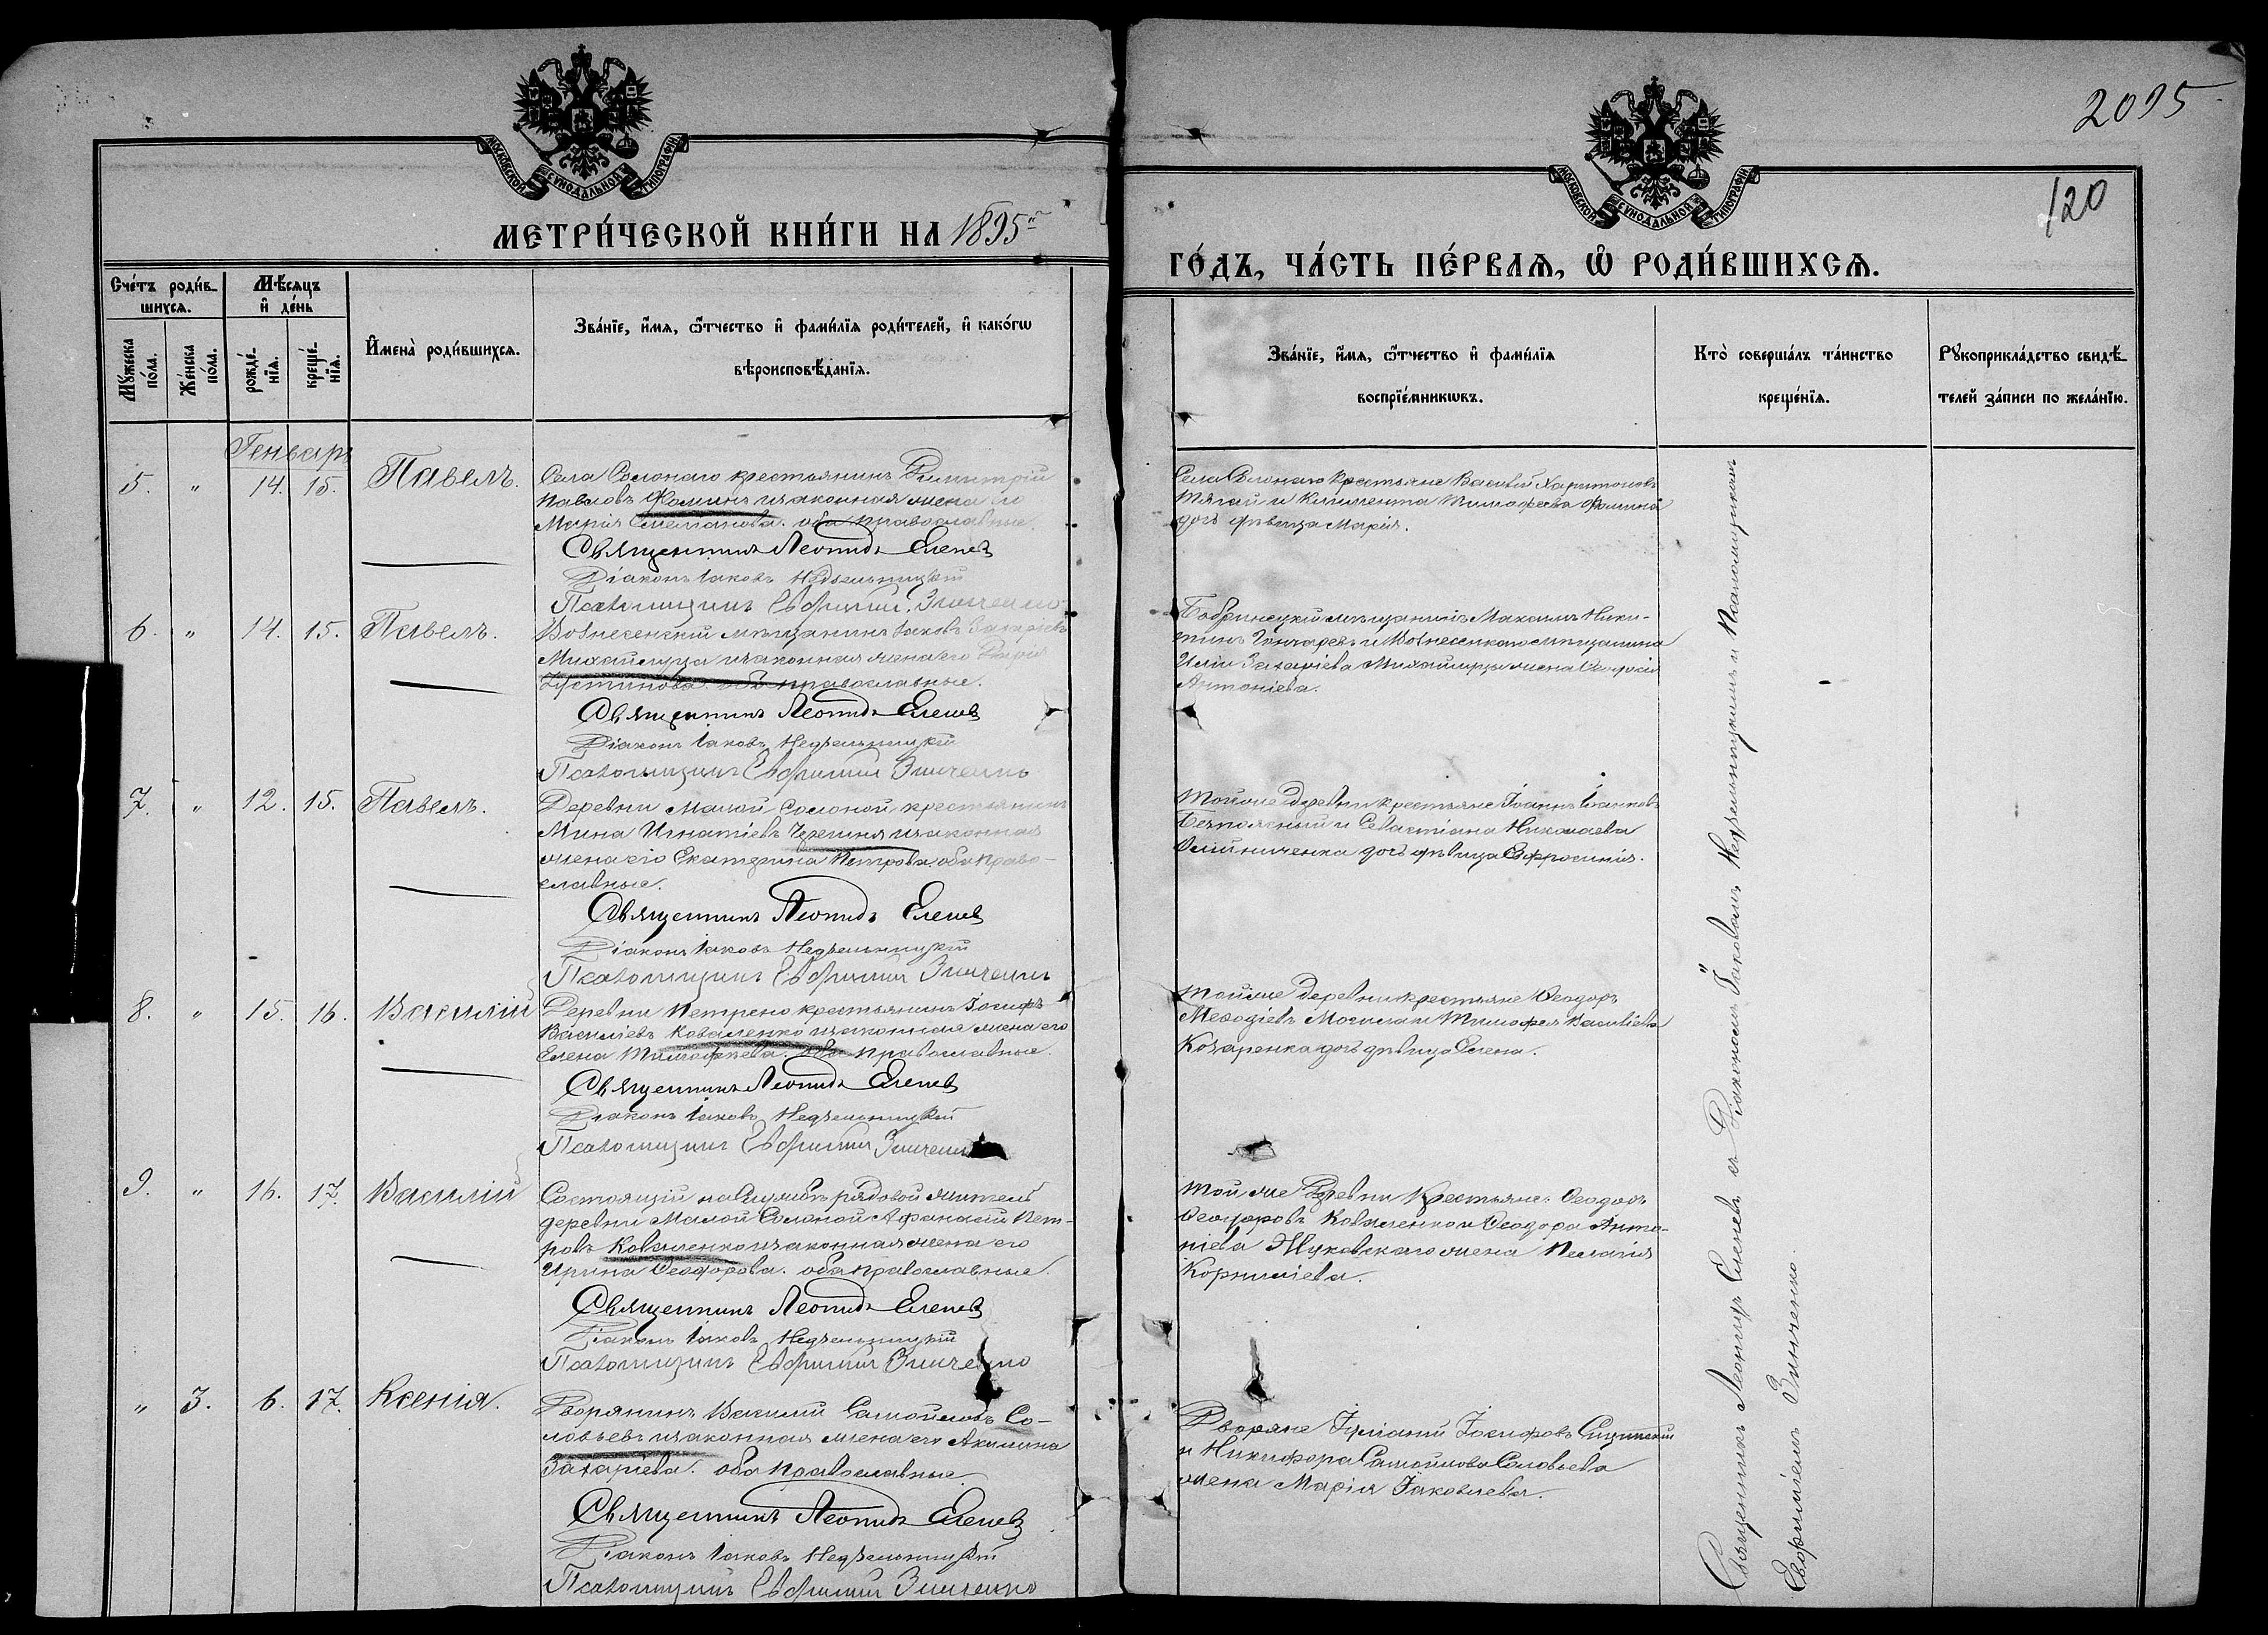 2095
120
МОСКОВСКОЙ СѴНОДАЛЬНОЙ ТИПОГРАФІИ
МОСКОВСКОЙ СѴНОДАЛЬНОЙ ТИПОГРАФІИ
МЕТРИ́ЧЕСКОЙ КНИ́ГИ НА 1895
ГО́ДЪ, ЧА́СТЬ ПЕ́РВАѦ, Ѽ РОДИ́ВШИХСѦ.
Сче́тъ роди́в-
шихсѧ.
Мꙋ́жеска по́ла.
Же́нска по́ла.
Мѣ́сѧцъ и҆ де́нь
рожде́-
нїѧ.
креще́-
нїѧ.
И҆мена̀ роди́вшихсѧ.
Зва́нїе, и҆́мѧ, ѻ҆́тчество и҆ фами́лїѧ роди́телей, и҆ како́гѡ
вѣроисповѣ́данїѧ.
Зва́нїе, и҆́мѧ, ѻ҆́тчество и҆ фами́лїѧ
воспрїе́мникѡвъ.
Кто̀ соверша́лъ та́инство
креще́нїѧ.
Рꙋкоприкла́дство свидѣ́-
телей за́писи по жела́нїю.
Генварь
5. " 14. 15. Павелъ.
Села Солонаго крестьянинъ Димитрій
Павловъ Фоминъ и законная жена его
Марія оба православные.
Священникъ Леонидъ Еленев
Діаконъ Іаковъ Недзельницкій
Псаломщикъ Евфимій Зинченко
Села Солонаго крестьяне Василій Харитоновъ
Тягай и Климента Тимофеева Фомина
дочь дѣвица Марія.
6. " 14. 15. Павелъ.
Вознесенскій мѣщанинъ Іаковъ Захаріевъ
Михайлуца и законная жена его Дарія
Іустинова оба православные.
Священникъ Леонидъ Еленев
Діаконъ Іаковъ Недзельницкій
Псаломщикъ Евфимій Зинченко
Бобринецкій мѣщанинъ Максимъ Ники-
тинъ Гончаревъ и Вознесенскаго мѣщанина
Иліи Захаріева Михайлуцы жена
Антоніева.
7. " 12. 15. Павелъ.
Деревни Малой Солоной крестьянинъ
Мина Игнатіевъ и законная
жена его Екатерина Петрова, оба право-
славные.
Священникъ Леонидъ Еленев
Діаконъ Іаковъ Недзельницкій
Псаломщикъ Евфимій Зинченко
Той же деревни крестьяне Іоаннъ
и Севастіана Николаева
Олійниченка дочь дѣвица Евфросинія.
8. " 15. 16. Василій
Деревни Петрено крестьянинъ Іосифъ
Василіевъ Коваленко и законная жена его
Елена Тимофеева. оба православные.
Священникъ Леонидъ Еленев
Діаконъ Іаковъ Недзельницкій
Псаломщикъ Евфимій Зинченко
Той же деревни крестьяне Ѳеодоръ
Меѳодіевъ и Тимофея Василіева
Козаренка дочь дѣвица Елена.
9. " 16. 17. Василій
Состоящій на службѣ рядовой житель
деревни Малой Солоной Афанасій Пет-
ровъ Коваленко и законная жена его
Ирина Ѳеодорова. оба православные.
Священникъ Леонидъ Еленев
Діаконъ Іаковъ Недзельницкій
Псаломщикъ Евфимій Зинченко
Той же деревни крестьяне: Ѳеодоръ
Ѳеодоровъ Коваленко и Ѳеодора Анто-
ніева Жуковскаго жена Пелагія
Корниліева.
" 3. 6. 17. Ксенія.
Дворянинъ Василій Самойловъ Со-
ловьевъ и законная жена его Акилина
Захаріева. оба православные
Священникъ Леонидъ Еленев
Діаконъ Іаковъ Недзельницкій
Псаломщикъ Евфимій Зинченко
Дворяне Іуліаній Іосифовъ
и Никифора Самойлова Соловьева
жена Марія Іаковлева.
Священникъ Леонидъ Еленевъ съ Діакономъ Іаковомъ Недзельницкимъ и Псаломщикомъ
Евфиміемъ Зинченко.